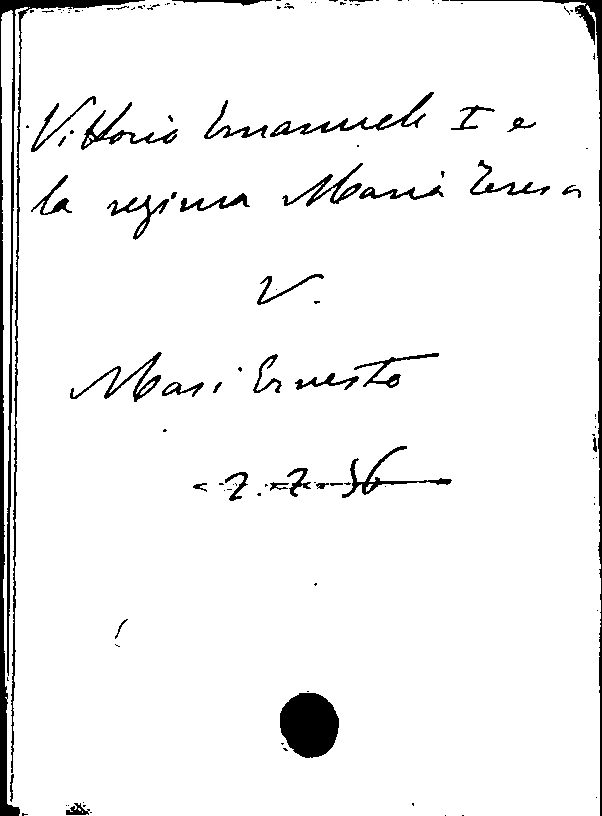 Vittorio Emanuele I e
la regina Maria Teresa
V.
Masi Ernesto